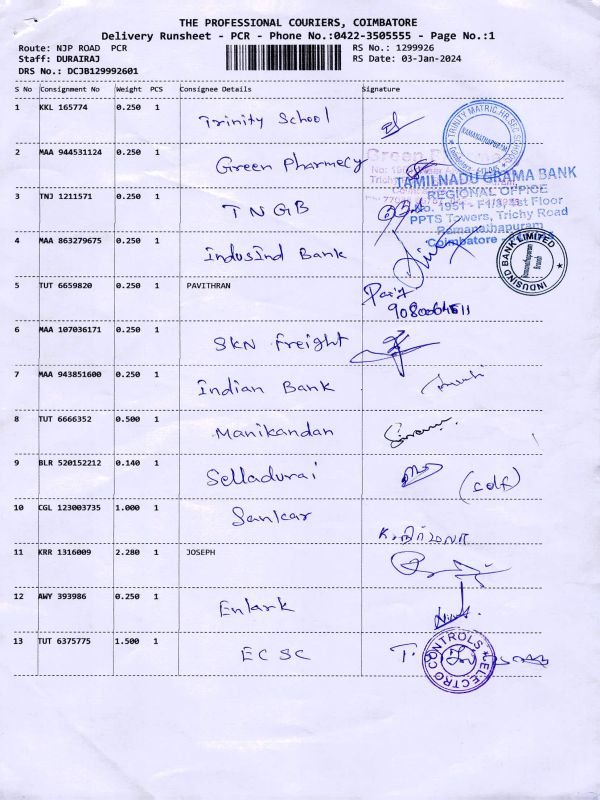 THE PROFESSIONAL COURIERS, COIMBATORE
Delivery Runsheet - PCR - Phone No.:0422-3505555 - Page No.:1
Route: NJP ROAD PCR RS No.: 1299926
Staff: DURAIRAJ RS Date: 03-Jan-2024
DRS No.: DCJB129992601
S No Consignment No Weight PCS Consignee Details Signature
1 KKL 165774 0.250 1 Trinity School
TRINITY MATRIC.HR.SEC SCHOOL
RAMANATHAPURAM
2 MAA 944531124 0.250 1 Green Pharmecy
Green
TAMILNADU GRAMA BANK
REGIONAL OFFICE
3 TNJ 1211571 0.250 1 TNGB
No. 1951 - F1/3, 1st Floor
PPTS Towers, Trichy Road
Ramanathapuram
Coimbatore
4 MAA 863279675 0.250 1 IndusInd Bank
INDUSIND BANK LIMITED
Ramanathapuram
Branch
5 TUT 6659820 0.250 1 PAVITHRAN
6 MAA 107036171 0.250 1 SKN freight
7 MAA 943851600 0.250 1 Indian Bank
8 TUT 6666352 0.500 1 Manikandan
9 BLR 520152212 0.140 1 Selladurai
10 CGL 123003735 1.000 1 Sankar
11 KRR 1316009 2.280 1 JOSEPH
12 AWY 393986 0.250 1 Enlark
13 TUT 6375775 1.500 1 ECSC T.
ELECTRO CONTROLS